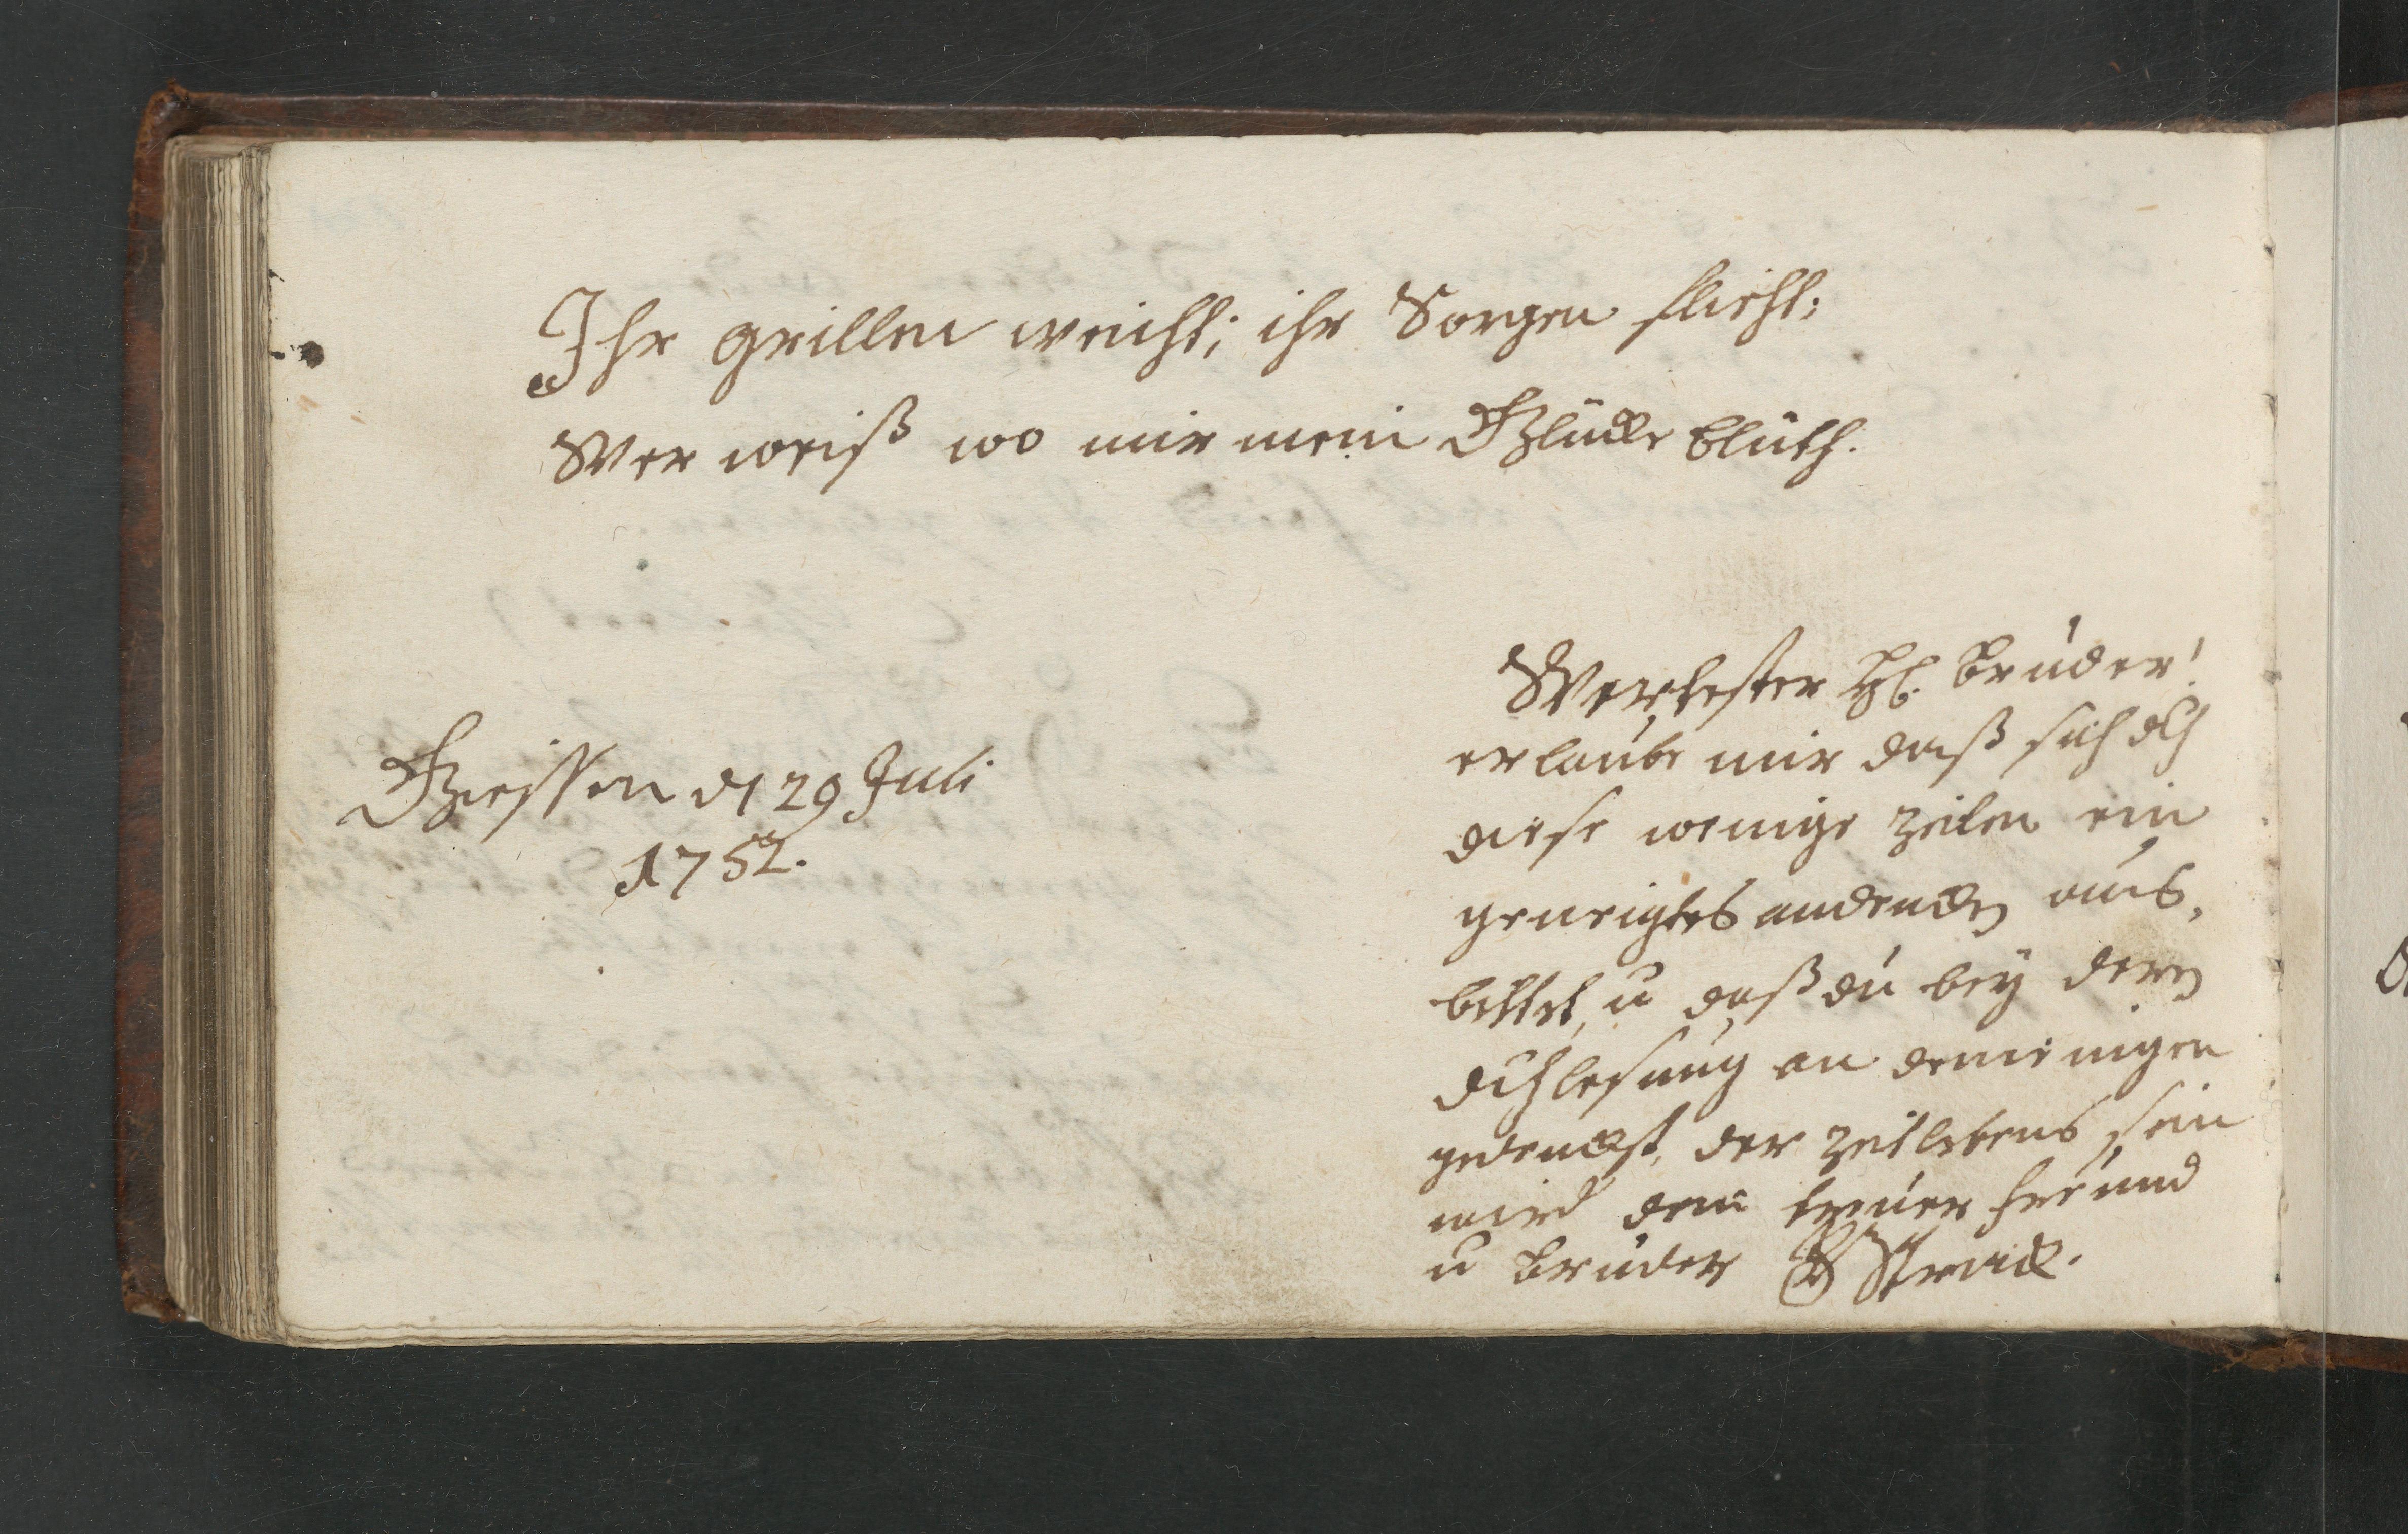 Ihr grillen weicht; ihr Sorgen flieht;
Wer weiß wo mir mein Glücke blüth.
Giessen d 29 Juli
1752.
Werthester H. Bruder!
erlaube mir daß sich dch
diese wenige Zeilen ein
geneigtes andencken aus,
bittet, u daß du bey deren
dchlesung an demienigen
gedenckst, der Zeitlebens sein
wird dein treuer freund
u bruder